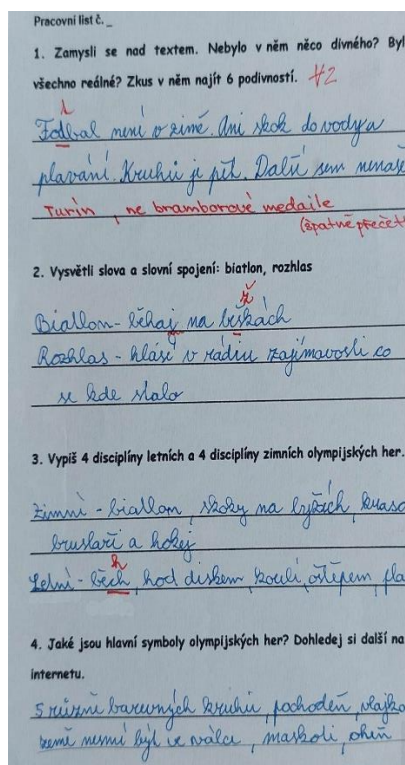 Pracovní list č._
1. Zamysli se nad textem. Nebylo v něm něco divného? Byl
všechno reálné? Zkus v něm najít 6 podivností. #2
t
Fodbal není v zimě. Ani skok do vody a
plavání. Kruhů je pět. Další sem nenaše
Turín, ne bramborové medaile
(špatně přečet
2. Vysvětli slova a slovní spojení: biatlon, rozhlas
ž
Biatlon - běhaj na beškách
Rozhlas - hlásí v rádiu zajímavosti co
se kde stalo
3. Vypiš 4 disciplíny letních a 4 disciplíny zimních olympijských her.
Zimní - biatlon, skoky na lyžích, kraso
bruslaři a hokej
h
Letní - běch, hod diskem, koulí, oštěpem, pla
4. Jaké jsou hlavní symboly olympijských her? Dohledej si další na
internetu.
5 různě barevných kruhů, pochodeň, vlajk
země nesmí být ve válce, maskoti, oheň